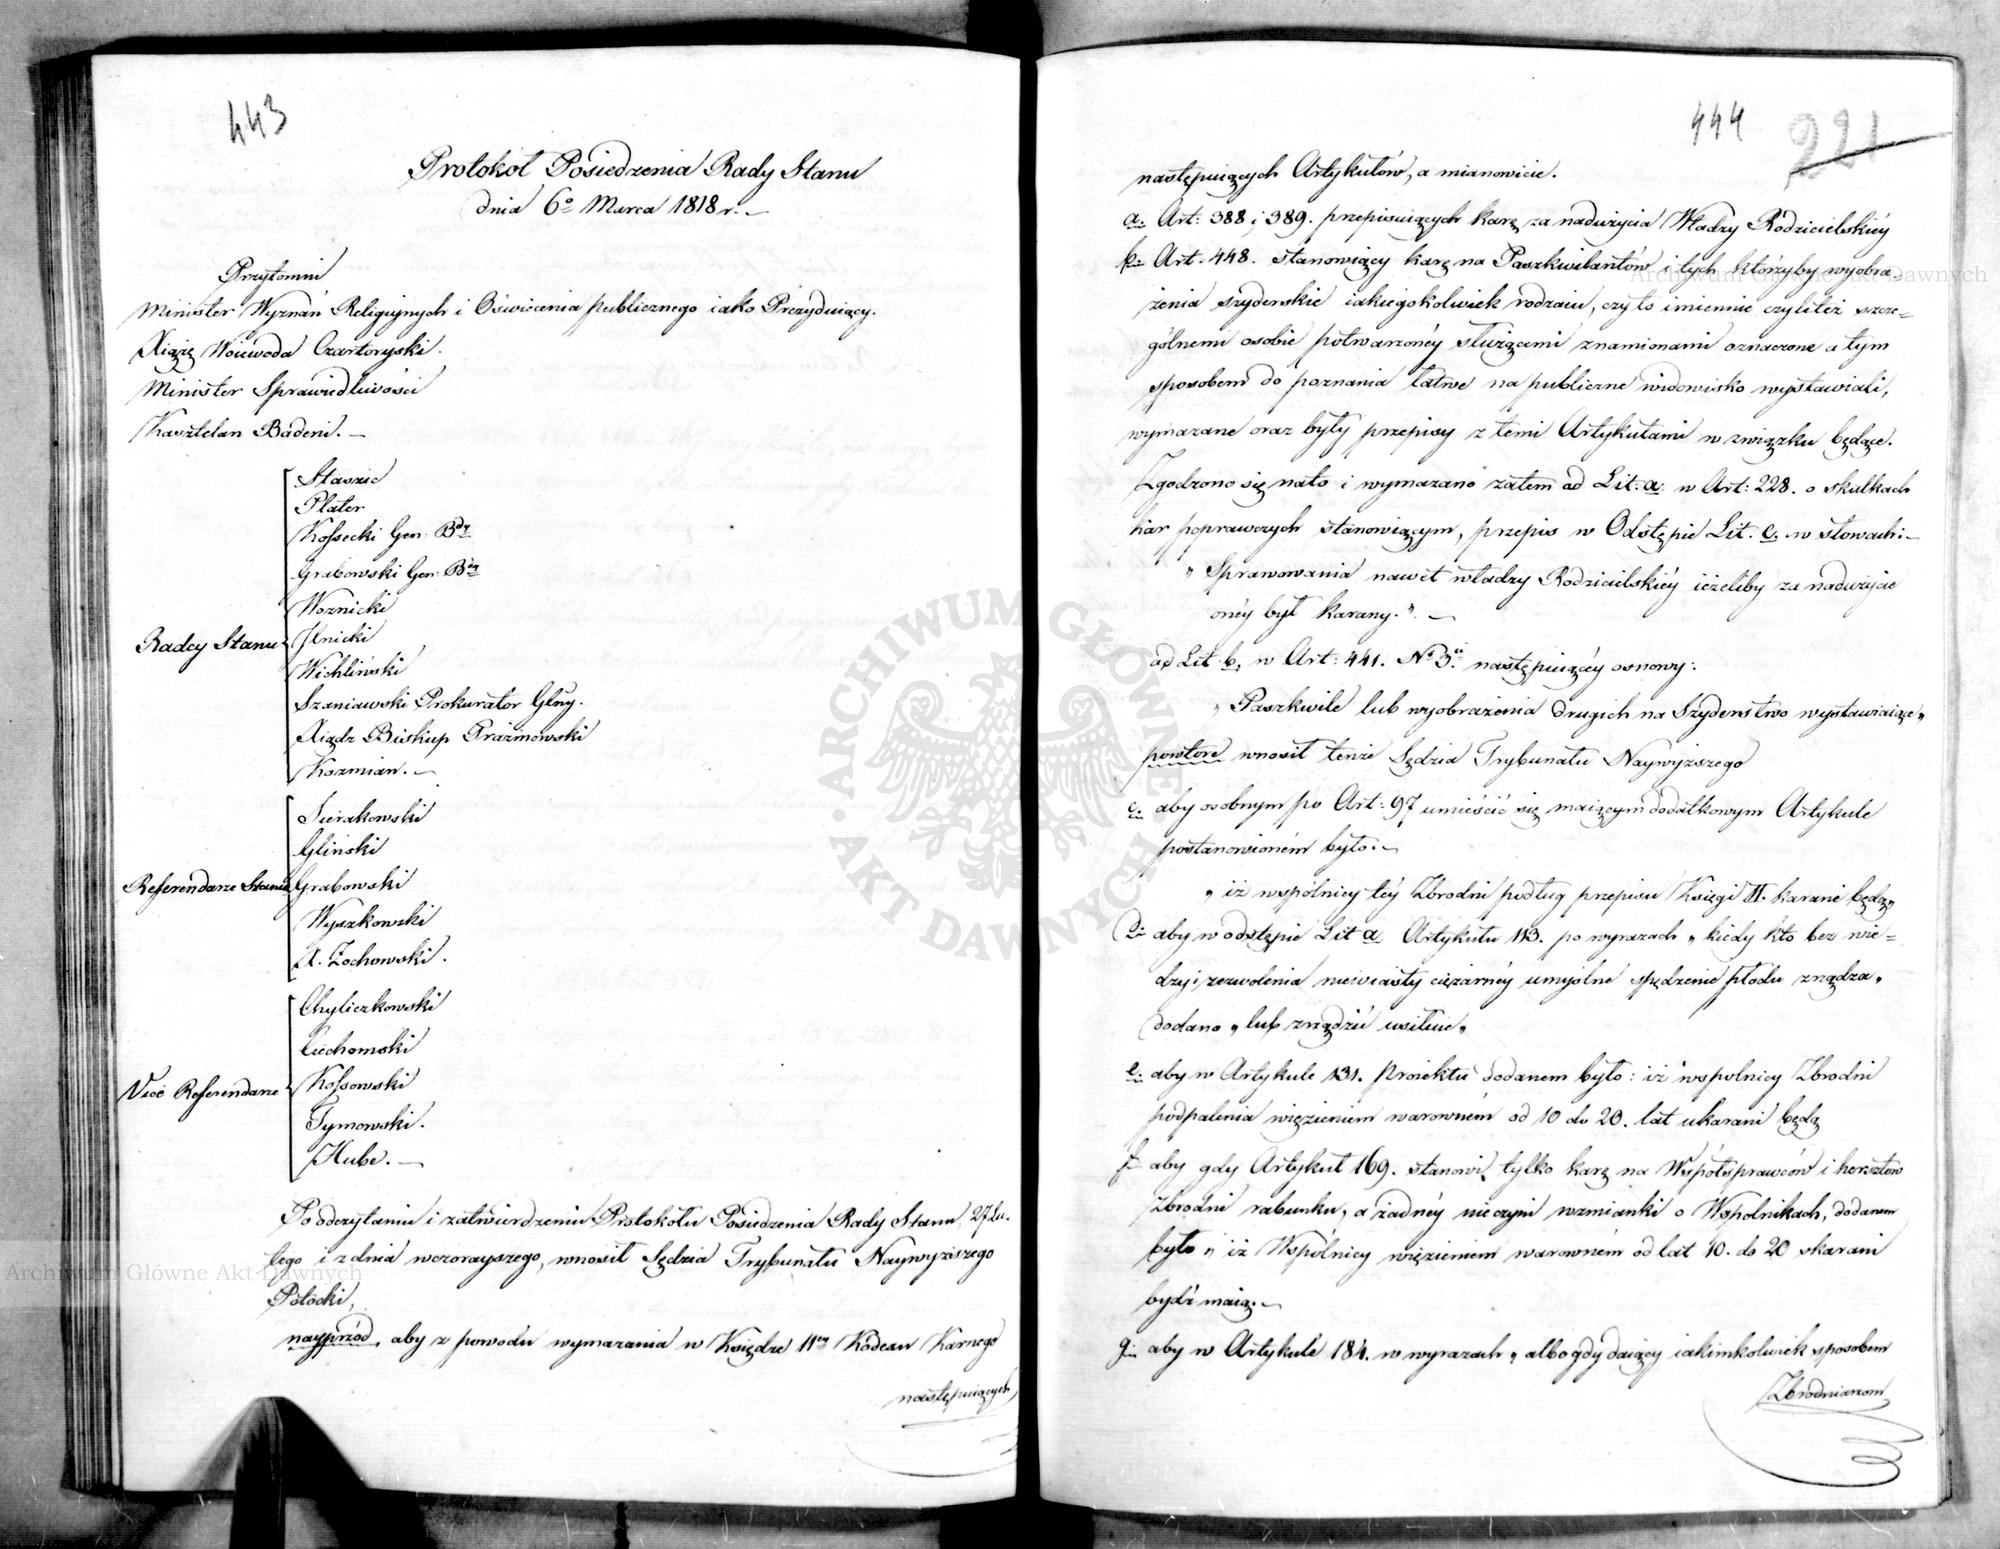 443
Protokół Posiedzenia Rady Stanu
dnia 6o Marca 1818 r.
Przytomni
Minister Wyznań Religijnych i Oświecenia publicznego iako Prezyduiący.
Xiążę Woiewoda Czartoryski.
Minister Sprawiedliwości
Kasztelan Badeni.
Radcy Stanu
Staszic
Plater
Kossecki Gen: Bdy
Grabowski Gen: Bdy
Woznicki
Jlnicki
Wichliński
Szaniawski Prokurator Glny.
Xiądz Biskup Prażmowski
Kozmian.
Referendarze Stanu
Sierakowski
Gliński
Grabowski
Wyszkowski
X. Żochowski.
Vice Referendarze
Chyliczkowski
Ciechomski
Kossowski
Tymowski.
Hube.
Po odczytaniu i zatwierdzeniu Protokołu Posiedzenia Rady Stanu, 27 Lu-
tego i z dnia wczorayszego, wnosił Sędzia Trybunału Naywyższego
Potocki,
nayprzód, aby z powodu wymazania w Księdze IIey Kodexu Karnego
następuiących
444
221
następuiących Artykułów, a mianowicie.
a. Art: 388 i 389. przepisuiących karę za nadużycia Władzy Rodzicielskiéy
b. Art. 448. stanowiący karę na Paszkwilantów i tych którzyby wyobra-
żenia szyderskie iakiegokolwiek rodzaiu, czy to imiennie czyliteż szcze-
gólnemi osobie potwarzonéy służącemi znamionami oznaczone a tym
sposobem do poznania łatwe na publiczne widowisko wystawiali,
wymazane oraz były przepisy z temi Artykułami w związku będące.
Zgodzono się na to i wymazano zatem ad Lit. a. w Art: 228. o skutkach
kar poprawczych stanowiącym, przepis w Odstępie Lit. c. w słowach:
„ Sprawowania nawet władzy Rodzicielskiéy ieżeliby za nadużycie
onéy był karany."
ad Lit. b. w Art: 441. No 3. następuiącéy osnowy:
„ Paszkwile lub wyobrażenia drugich na Szyderstwo wystawiaiące„
powtore wnosił tenże Sędzia Trybunału Naywyższego
c. aby osobnym po Art: 97 umieścić się maiącym dodatkowym Artykule
postanowioném było:
„ iż wspólnicy téy Zbrodni podług przepisu Księgi II. karani będą„
d. aby w odstępie Lit a Artykułu 113. po wyrazach „ kiedy kto bez wie-
dzy i zezwolenia niewiasty ciężarnéy umyślne spędzenie płodu zrządza„
dodano „ lub zrządzić usiłuie„
e. aby w Artykule 131. Proiektu dodanem było: iż wspolnicy Zbrodni
podpalenia więzieniem warowném od 10 do 20. lat ukarani będą
f. aby gdy Artykuł 169. stanowi tylko karę na Współsprawców i hersztów
Zbrodni rabunku, a żadnéy nieczyni wzmianki o Wspolnikach, dodanem
było „ iż Wspólnicy więzieniem warowném od lat 10. do 20 skarani
bydź maią.
g. aby w Artykule 184. w wyrazach „ albo gdy daiący iakimkolwiek sposobem
Zbrodniarzom
Archiwum Główne Akt Dawnych
Archiwum Główne Akt Dawnych
ARCHIWUM GŁÓWNE AKT DAWNYCH